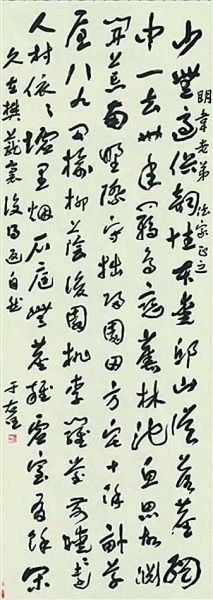 少無適俗韻性本愛邱山誤落塵網
明韋老弟法家正之
中一去卅年羈鳥戀舊林池魚思故淵
開荒南野際守拙歸園田方宅十餘畝草
屋八九間榆柳蔭後園桃李羅堂前曖〻遠
人村依〻墟里烟戶庭無塵雜虛室有餘閑
久在樊籠裏復得返自然
于右任